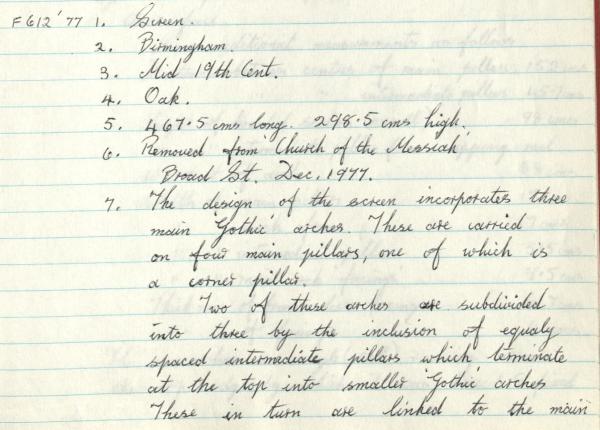 F612'77 1. Screen.
2. Birmingham.
3. Mid 19th Cent.
4. Oak.
5. 467.5 cms long. 298.5 cms high.
6. Removed from 'Church of the Messiah'
Broad St. Dec, 1977.
7. The design of the screen incorporates three
main 'Gothic' arches. These are carried
on four main pillars, one of which is
a corner pillar.
Two of these arches are subdivided
into three by the inclusion of equaly
spaced intermediate pillars which terminate
at the top into smaller 'Gothic' arches
These in turn are linked to the main